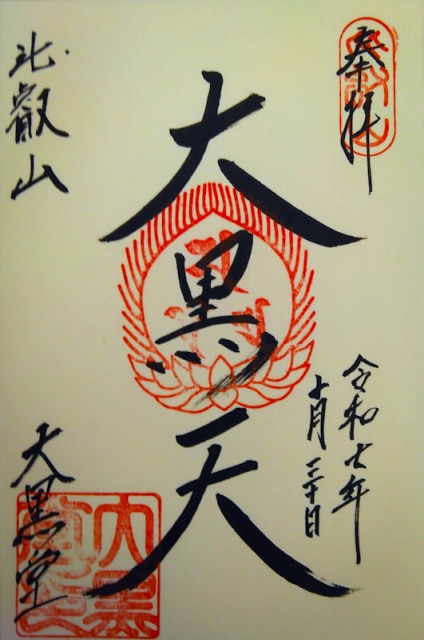 奉拝
令和七年
十月三十日
大黒天
比叡山
大黒堂